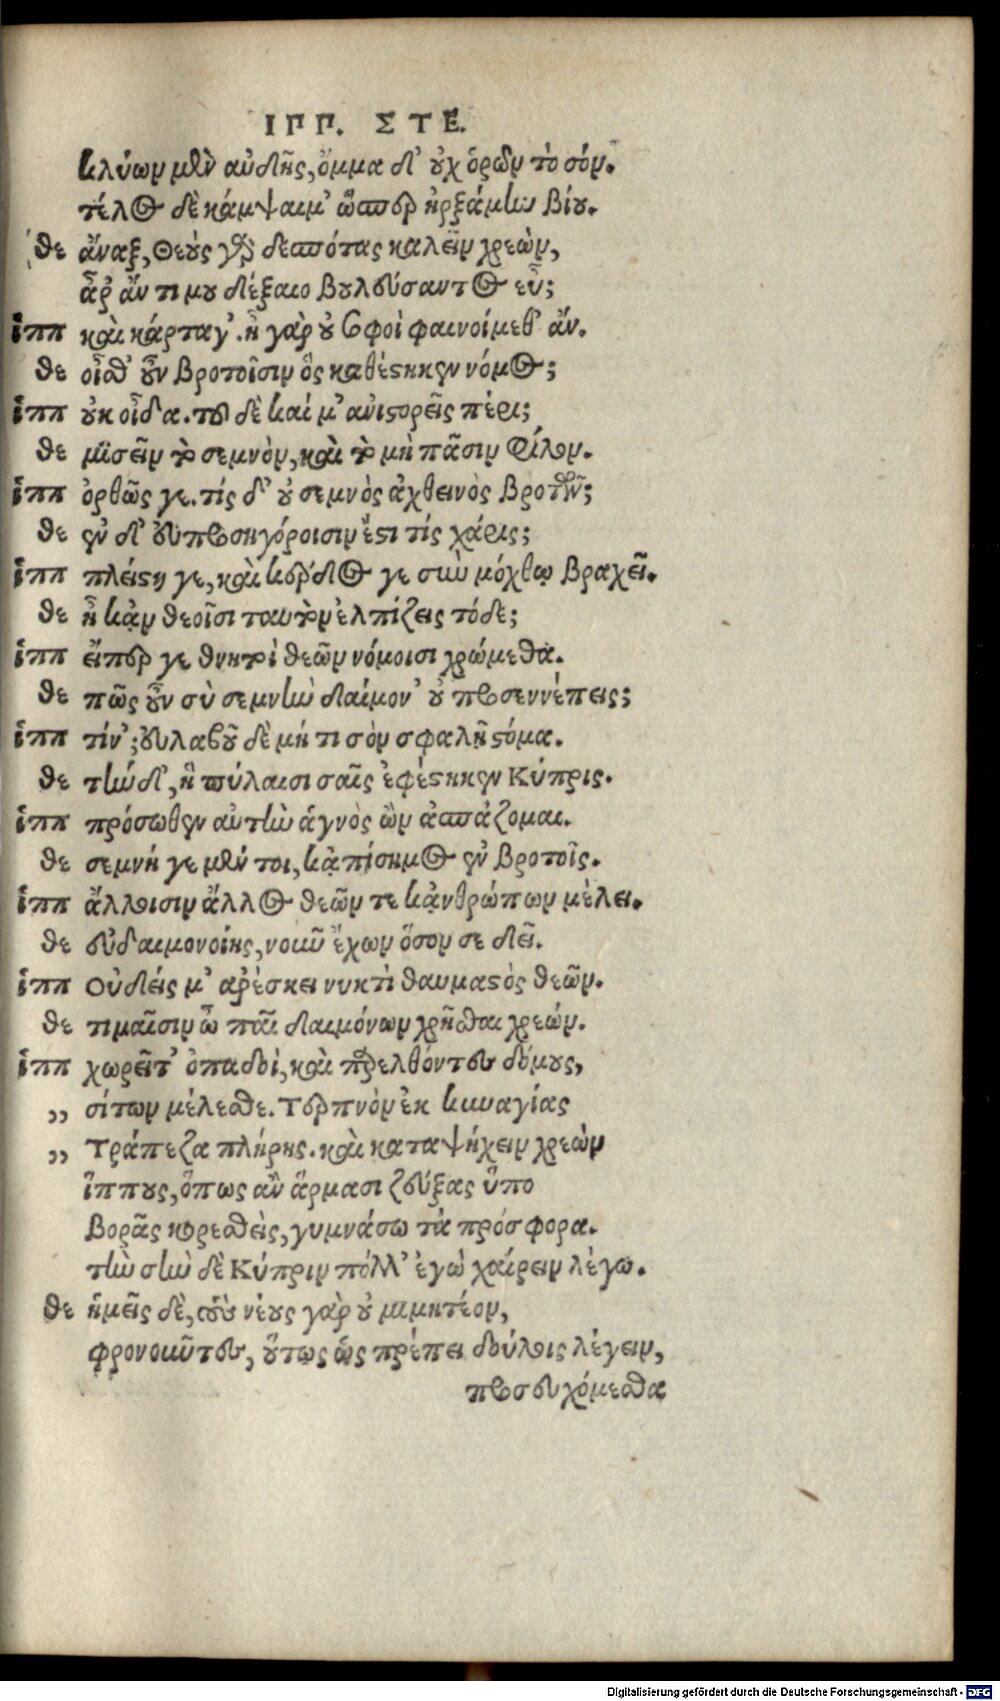 ΙΠΠ. ΣΤΕ.
κλύων μὲν αὐδῆς, ὄμμα δ' οὐχ ὁρῶν τὸ σόν.
τέλος δὲ κάμψαιμ' ὥσπερ ἠρξάμην βίου.
θε ἄναξ, Θεοὺς γὰρ δεσπότας καλεῖν χρεὼν,
ἆρ' ἄν τι μου δέξαιο βουλεύσαντος εὖ;
ἱππ καὶ κάρταγ'. ἦ γὰρ οὐ σοφοὶ φαινοίμεθ' ἄν.
θε οἶσθ' οὖν βροτοῖσιν ὃς καθέστηκεν νόμος;
ἱππ οὐκ οἶδα. τοῦ δὲ καί μ' ἀνιστορεῖς πέρι;
θε μισεῖν τὸ σεμνὸν, καὶ τὸ μὴ πᾶσιν φίλον.
ἱππ ὀρθῶς γε. τίς δ' οὐ σεμνὸς ἀχθεινὸς βροτῶν;
θε ἐν δ' εὐπροσηγόροισιν ἔστι τίς χάρις;
ἱππ πλείστη γε, καὶ κέρδος γε σὺν μόχθῳ βραχεῖ.
θε ἦ κᾀν θεοῖσι ταυτὸν ἐλπίζεις τόδε;
ἱππ εἴπερ γε θνητοὶ θεῶν νόμοισι χρώμεθα.
θε πῶς οὖν σὺ σεμνὴν δαίμον' οὐ προσεννέπεις;
ἱππ τίν'; εὐλαβοῦ δὲ μή τι σὸν σφαλῇ στόμα.
θε τὴν δ', ἣ πύλαισι σαῖς ἐφέστηκεν Κύπρις.
ἱππ πρόσωθεν αὐτὴν ἁγνὸς ὢν ἀσπάζομαι.
θε σεμνή γε μέν τοι, κᾀπίσημος ἐν βροτοῖς.
ἱππ ἄλλοισιν ἄλλος θεῶν τε κᾀνθρώπων μέλει.
θε εὐδαιμονοίης, νοῦν ἔχων ὅσον σε δεῖ.
ἱππ Οὐδείς μ' ἀρέσκει νυκτὶ θαυμαστὸς θεῶν.
θε τιμαῖσιν ὦ παῖ δαιμόνων χρῆσθαι χρεών.
ἱππ χωρεῖτ' ὀπαδοὶ, καὶ παρελθόντες δόμους,
,, σίτων μέλεσθε. Τερπνὸν ἐκ κυναγίας
,, Τράπεζα πλήρης. καὶ καταψήχειν χρεὼν
ἵππους, ὅπως ἂν ἅρμασι ζεύξας ὕπο
βορᾶς κορεσθεὶς, γυμνάσω τὰ πρόσφορα.
τὴν σὴν δὲ Κύπριν πόλλ' ἐγὼ χαίρειν λέγω.
θε ἡμεῖς δὲ, τοὺς νέους γὰρ οὐ μιμητέον,
φρονοῦντες, οὕτως ὡς πρέπει δούλοις λέγειν,
προσευχόμεσθα
Digitalisierung gefördert durch die Deutsche Forschungsgemeinschaft - DFG